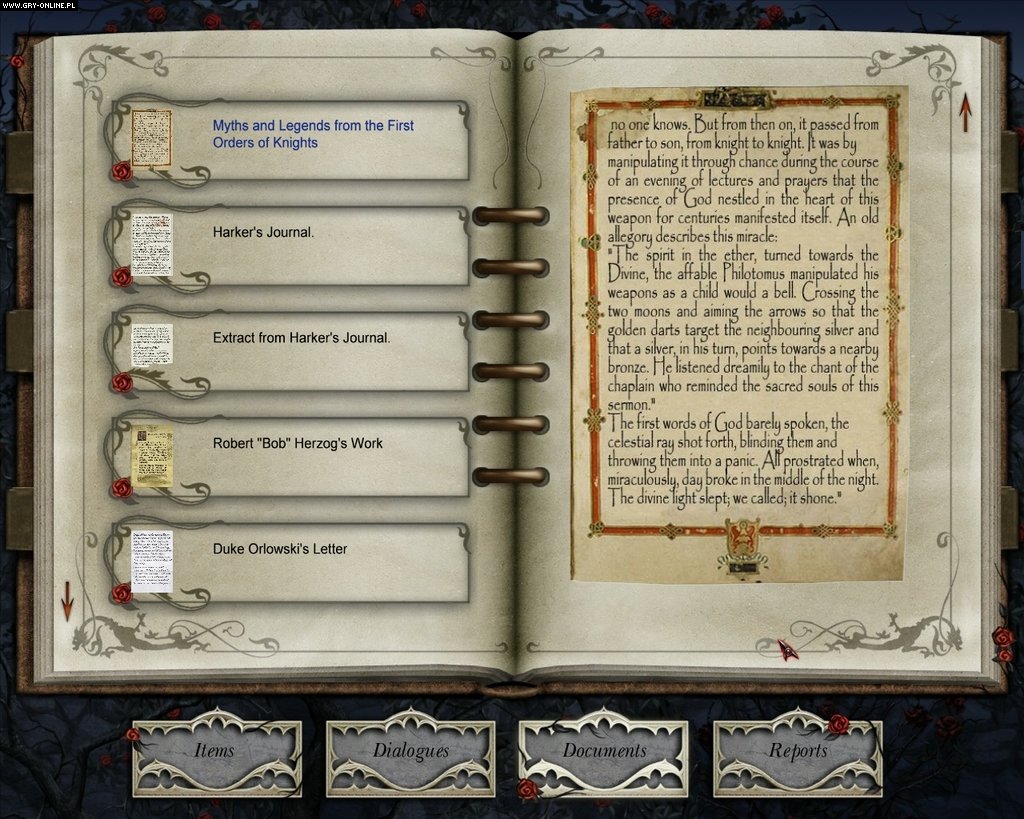 WWW.GRY-ONLINE.PL
Myths and Legends from the First
Orders of Knights
Harker's Journal.
Extract from Harker's Journal.
Robert "Bob" Herzog's Work
Duke Orlowski's Letter
no one knows. But from then on, it passed from
father to son, from knight to knight. It was by
manipulating it through chance during the course
of an evening of lectures and prayers that the
presence of God nestled in the heart of this
weapon for centuries manifested itself. An old
allegory describes this miracle:
"The spirit in the ether, turned towards the
Divine, the affable Philotomus manipulated his
weapons as a child would a bell. Crossing the
two moons and aiming the arrows so that the
golden darts target the neighbouring silver and
that a silver, in his turn, points towards a nearby
bronze. He listened dreamily to the chant of the
chaplain who reminded the sacred souls of this
sermon."
The first words of God barely spoken, the
celestial ray shot forth, blinding them and
throwing them into a panic. All prostrated when,
miraculously, day broke in the middle of the night.
The divine light slept; we called; it shone."
Items
Dialogues
Documents
Reports